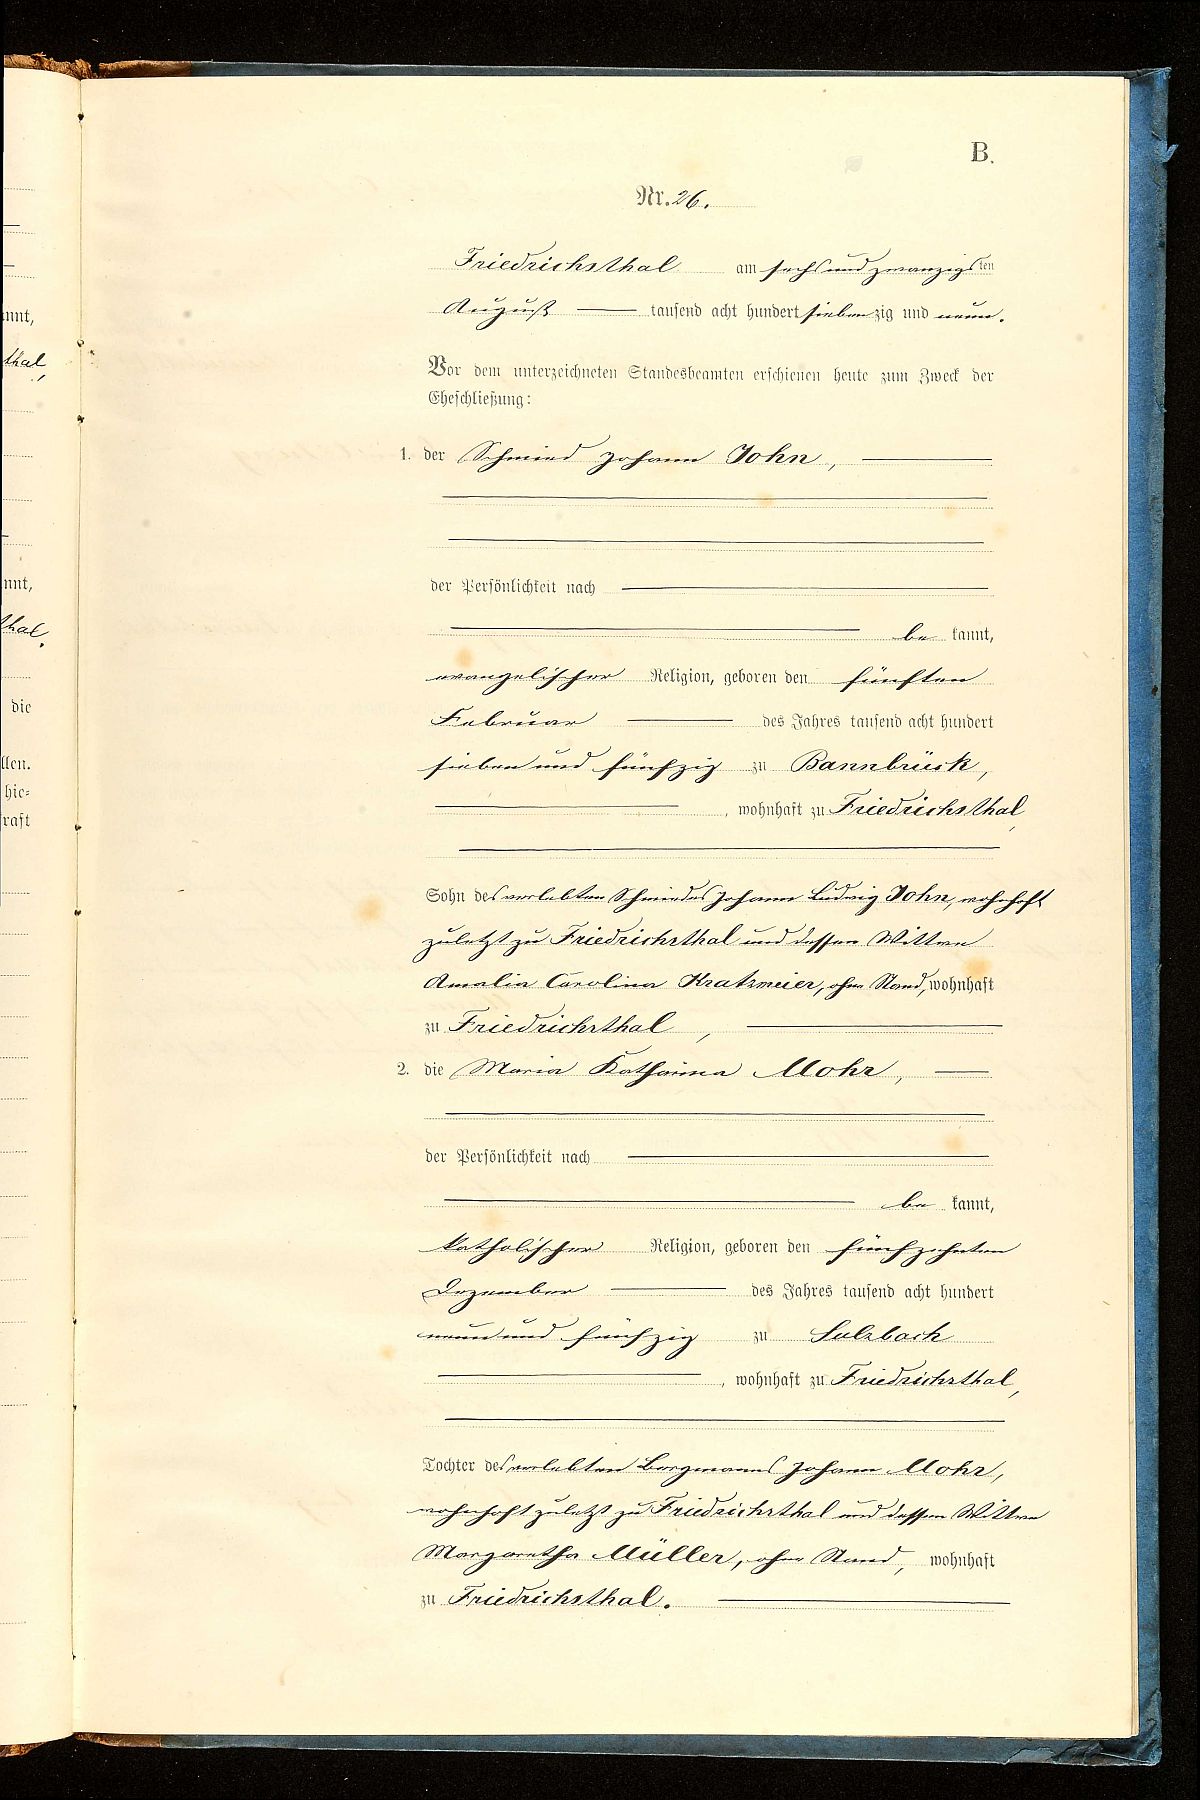 B.
Nr. 26.
Friedrichsthal am sechs und zwanzigsten
August tausend acht hundert siebenzig und neun.
Vor dem unterzeichneten Standesbeamten erschienen heute zum Zweck der
Eheschließung:
1. der Schmied Johann John,
der Persönlichkeit nach
be kannt,
evangelischer Religion, geboren den fünften
Februar des Jahres tausend acht hundert
sieben und fünfzig zu Bannbrück,
, wohnhaft zu Friedrichsthal,
Sohn des verlebten Schmiedes Johann Ludwig John, wohnhaft
zuletzt zu Friedrichsthal und dessen Wittwe
Amalia Carolina Kratzmeier, ohne Stand, wohnhaft
zu Friedrichsthal,
2. die Maria Katharina Mohr,
der Persönlichkeit nach
be kannt,
katholischer Religion, geboren den fünfzehnten
Dezember des Jahres tausend acht hundert
neun und fünfzig zu Sulzbach
, wohnhaft zu Friedrichsthal,
Tochter des verlebten Bergmanns Johann Mohr,
wohnhaft zuletzt zu Friedrichsthal und dessen Wittwe
Margaretha Müller, ohne Stand, wohnhaft
zu Friedrichsthal.
nnt,
thal,
nnt,
thal.
die
llen.
hie=
raft